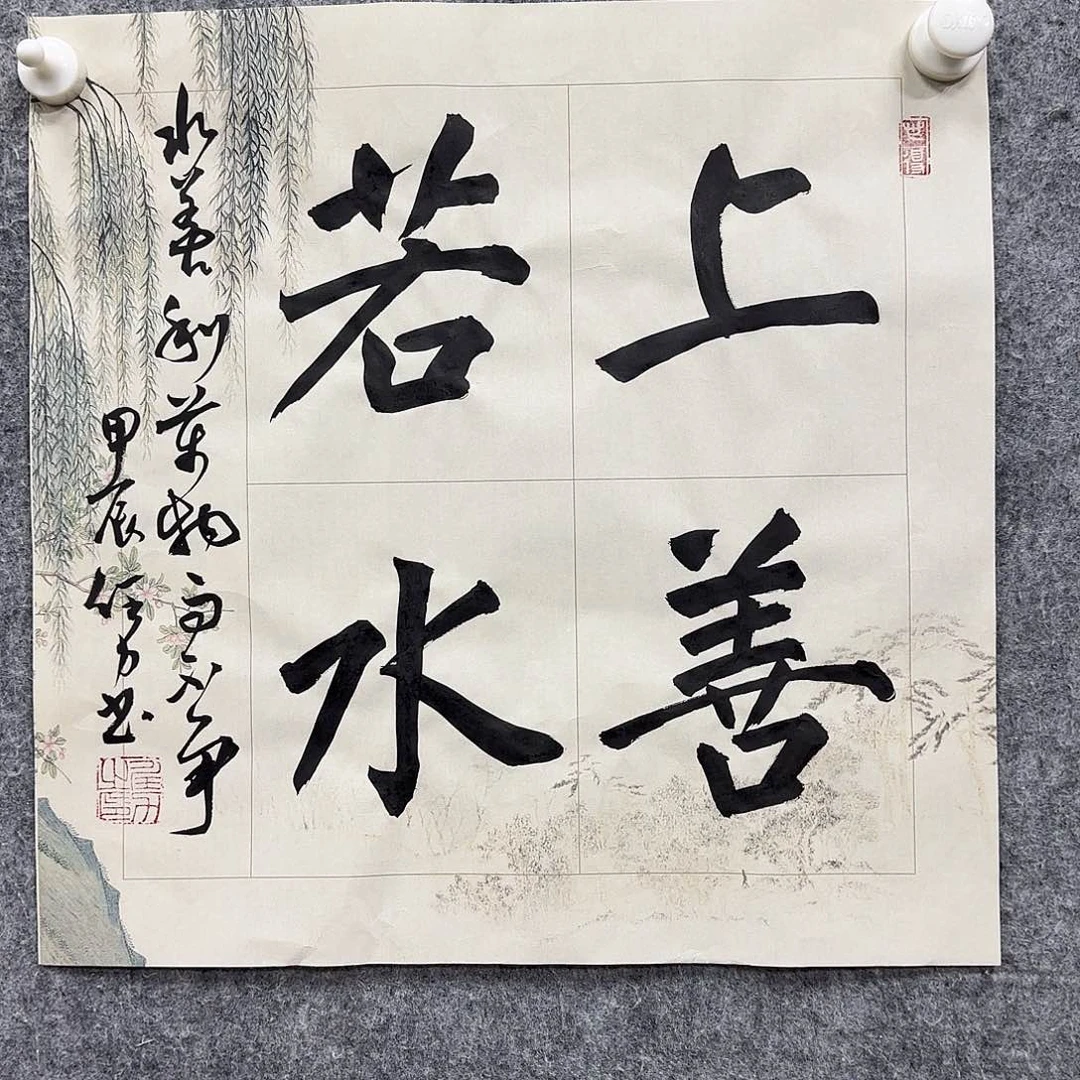 上善
若水
水善利萬物而不争
甲辰任力书